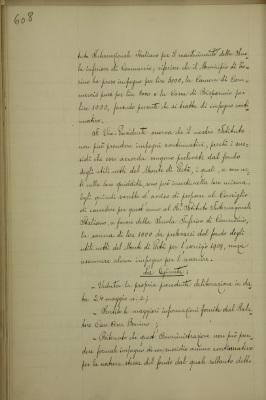 608
tuto Internazionale Italiano per il mantenimento della Scuo
la Inferiore di Commercio, riferisce che il Municipio di To
rino ha preso impegno per lire 3000, la Camera di Com
mercio pure per lire 3000 e la Cassa di Risparmio per
lire 1000, facendo presente che si tratta di impegno con
tinuativo.
Il Vice-Presidente osserva che il nostro Istituto
non può prendere impegni continuativi, perché i sus
sidi che esso accorda vengono prelevati dal fondo
degli utili netti del Monte di Pietà, i quali, o man
nella loro quiddità, sono più
Egli quindi sarebbe di avviso di proporre al Consiglio
di concedere per quest'anno al R. Istituto Internazionale
Italiano a favore della Scuola Inferiore di Commercio,
la somma di lire 1000 da prelevarsi dal fondo degli
utili netti del Monte di Pietà per l'esercizio 1909, senza
assumere alcun impegno per l'avvenire.
La Giunta;
Veduta la propria precedente deliberazione in da
ta 24 maggio u. s.;
Sentite le maggiori informazioni fornite dal Rela
tore Cav. Avv. Bonino;
Ritenuto che quest'Amministrazione non può pren
dere formale impegno di un sussidio annuo continuativo
per la natura stessa del fondo dal quale sarebbe dello